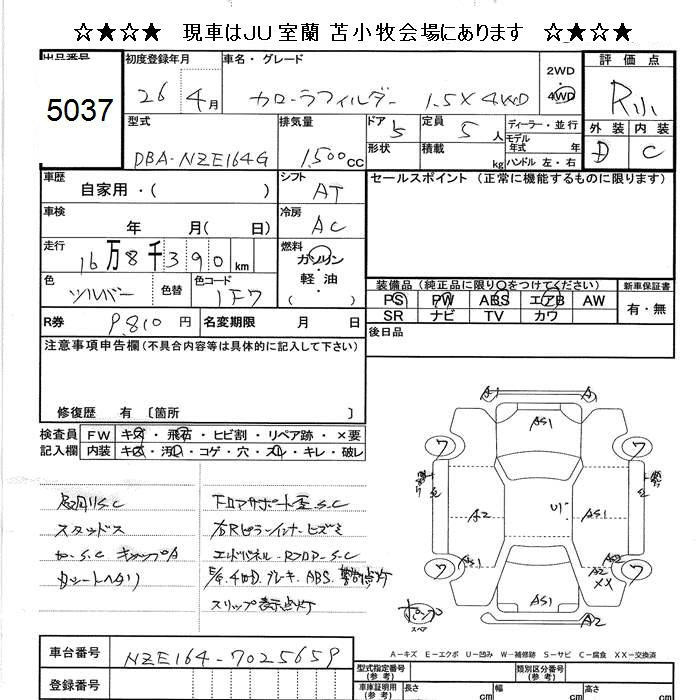 ☆★☆★ 現車はJU室蘭 苫小牧会場にあります ☆★☆★
出品番号 初度登録年月 車名・グレード 2WD 評価点
5037 26 4月 カローラフィルダー 1.5X 4WD 4WD R小
型式 排気量 ドア 5 定員 5人 ディーラー・並行 外装 内装
DBA-NZE164G 1,500cc 形状 積載 kg モデル年式 年 D C
ハンドル 左・右
車歴 シフト セールスポイント (正常に機能するものに限ります)
自家用・( ) AT
車検 冷房
年 月( 日) AC
走行 燃料
16万8千390km ガソリン
軽・油
( )
色 色替 色コード 装備品 (純正品に限り○をつけてください) 新車保証書
シルバー 1F7 PS PW ABS エアB AW 有・無
SR ナビ TV カワ
R券 9,810円 名変期限 月 日 後日品
注意事項申告欄(不具合内容等は具体的に記入して下さい)
修復歴 有 〔箇所 〕
検査員 FW キズ・飛石・ヒビ割・リペア跡・×要
記入欄 内装 キズ・汚れ・コゲ・穴・スレ・キレ・破レ
足回りS.C
スタッドス
下回り
フロアサポート歪 S.C
右Rピラーインナーヒズミ
エンドパネル・Rフロアー S.C
E/G. 4WD. ブレーキ. ABS. 警告点灯
スリップ表示点灯
A1 A1
AS1
ワ ワ
A2 U1 AS1
AS1 A2
XX
ワ ワ
AS1
A2
スペア
A－キズ E－エクボ U－凹み W－補修跡 S－サビ C－腐食 XX－交換済
車台番号 NZE164-7025659
登録番号
型式指定番号(参考) 類別区分番号(参考)
車庫証明用(参考) 長さ cm 幅 cm 高さ cm